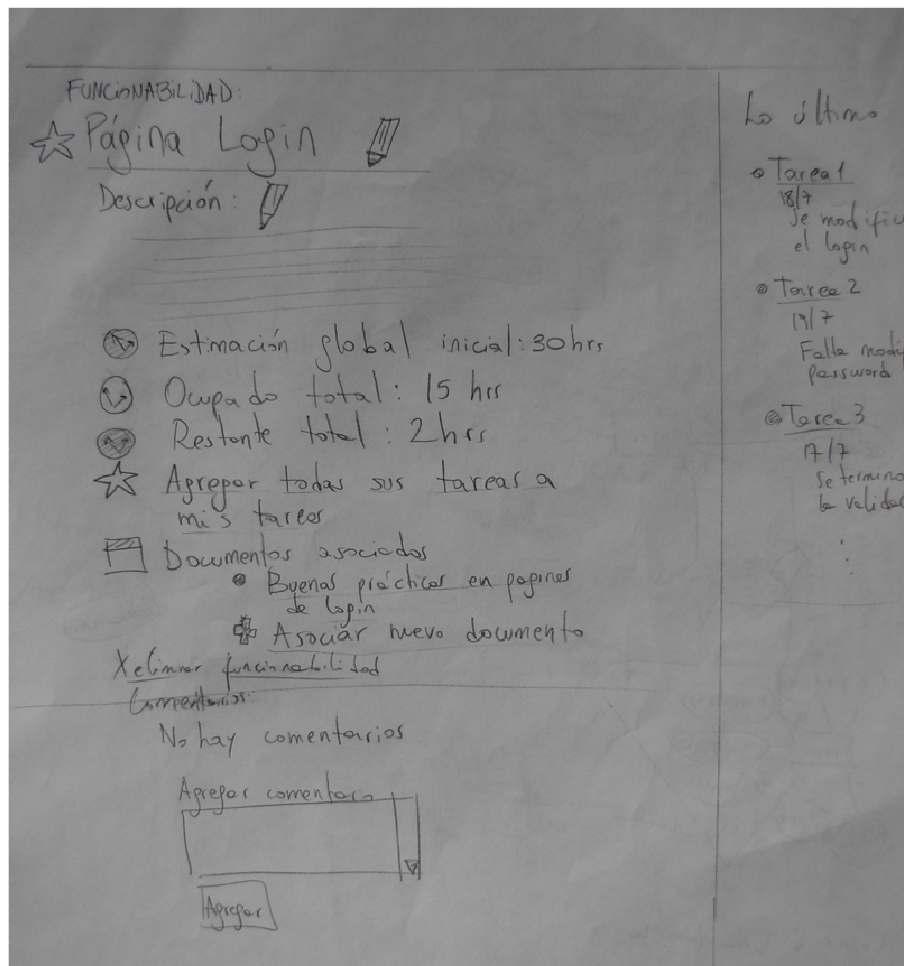 FUNCIONABILIDAD:
Página Login
Descripción:
Estimación global inicial: 30hrs
Ocupado total: 15 hrs
Restante total: 2hrs
Agregar todas sus tareas a
mis tareas
Documentos asociados
Buenas prácticas en paginas
de login
Asociar nuevo documento
X eliminar funcionabilidad
Comentarios:
No hay comentarios
Agregar comentario
Agregar
Lo último
Tarea 1
18/7
Se modific
el login
Tarea 2
Falla modi
password
Tarea 3
17/7
Se termino
la validac